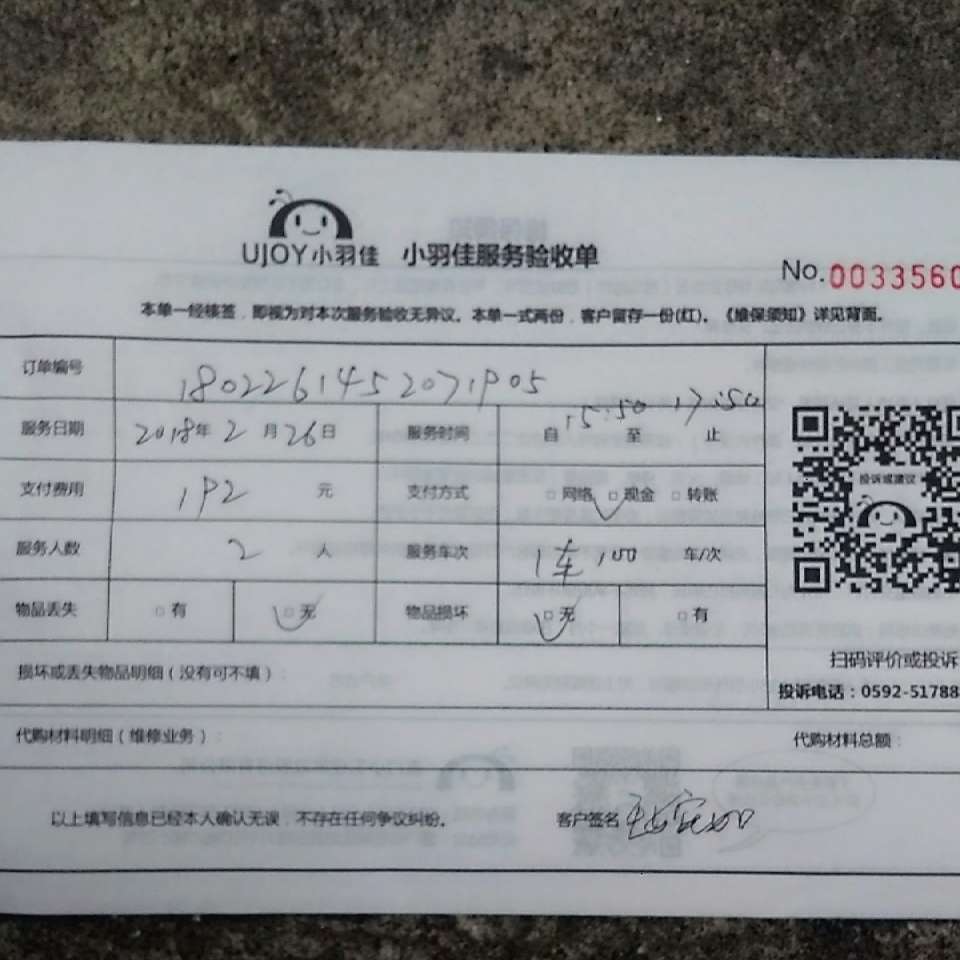 UJOY小羽佳 小羽佳服务验收单
No.0033560
本单一经核签，即视为对本次服务验收无异议。本单一式两份，客户留存一份(红)。《维保须知》详见背面。
订单编号 1802261452071905
服务日期 2018年 2 月 26 日 服务时间 自 15:50 至 17:50 止
支付费用 192 元 支付方式 □网络 □现金 □转账
服务人数 2 人 服务车次 1车 100 车/次
物品丢失 □有 □无 物品损坏 □无 □有
投诉或建议
扫码评价或投诉
损坏或丢失物品明细（没有可不填）：
投诉电话：0592-51788
代购材料明细（维修业务）： 代购材料总额：
以上填写信息已经本人确认无误，不存在任何争议纠纷。 客户签名